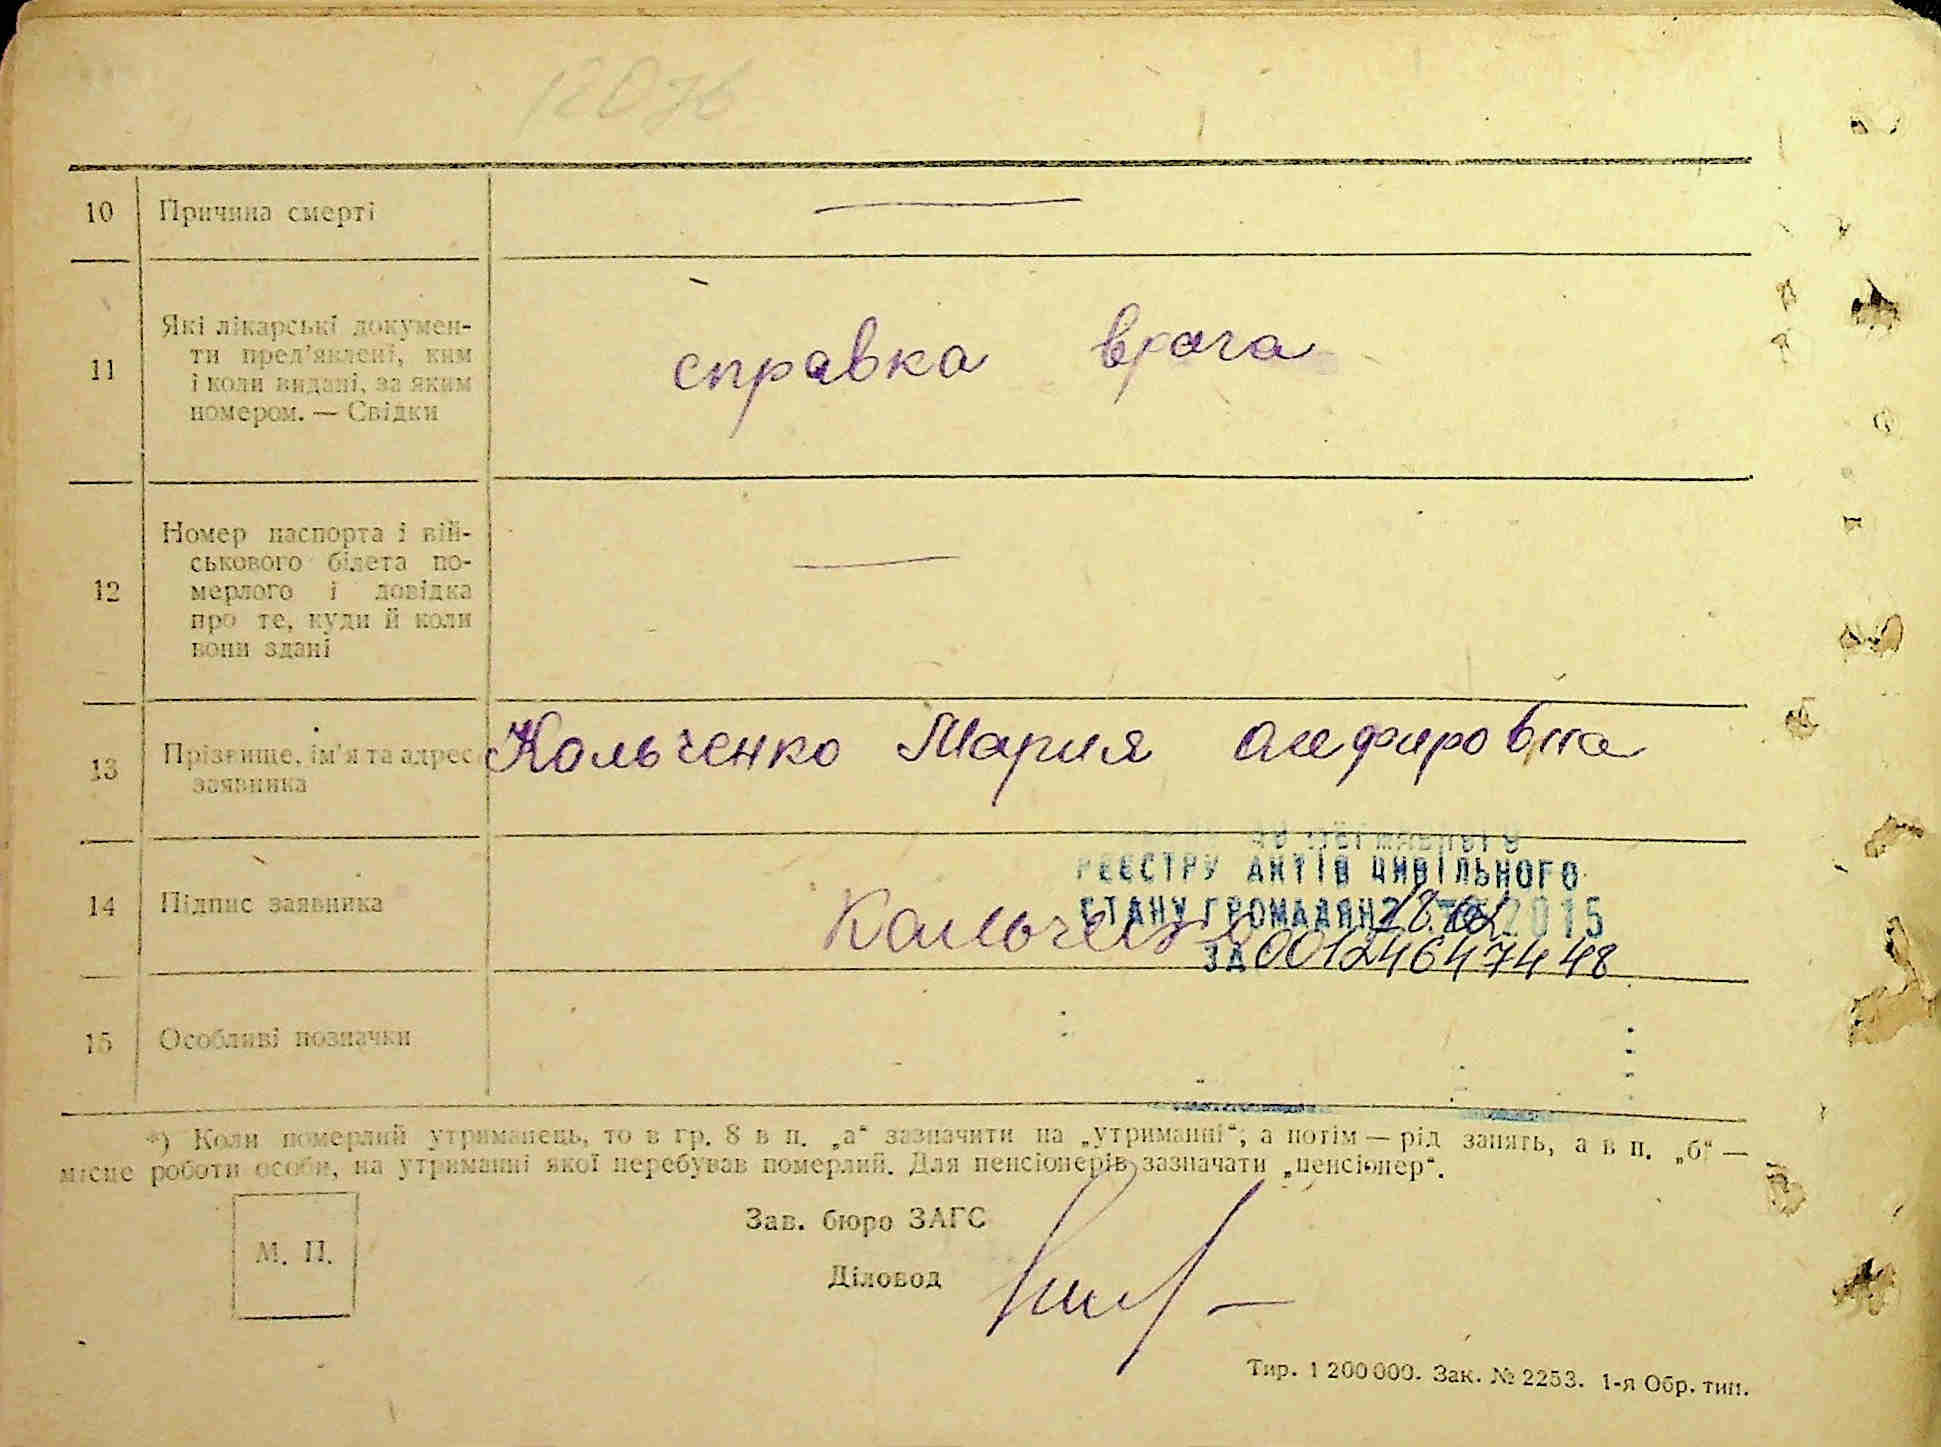 10 Причина смерті —
11 Які лікарські докумен-
ти пред'явлені, ким
і коли видані, за яким
номером. — Свідки
справка врача
12 Номер паспорта і вій-
ськового білета по-
мерлого і довідка
про те, куди й коли
вони здані
—
13 Прізвище, ім'я та адрес
заявника
Кольченко Мария
РЕЄСТРУ АКТІВ ЦИВІЛЬНОГО
14 Підпис заявника
СТАНУ ГРОМАДЯН 2015
ЗА 00124647448
15 Особливі позначки
*) Коли померлий утриманець, то в гр. 8 в п. „а“ зазначити на „утриманні“; а потім — рід занять, а в п. „б“ —
місце роботи особи, на утриманні якої перебував померлий. Для пенсіонерів зазначати „пенсіонер“.
Зав. бюро ЗАГС
М. П.
Діловод
Тир. 1 200 000. Зак. № 2253. 1-я Обр. тип.